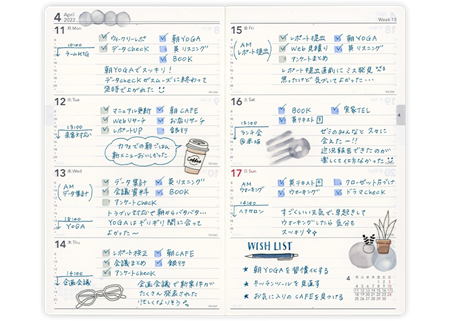 4 April
2022
Week 15
11 月 Mon
ウィークリーレポ
朝YOGA
データcheck
英リスニング
BOOK
10:00
チームMTG
朝YOGAでスッキリ!
データcheckがスムーズに終わって
定時で上がれた
12 火 Tue
マニュアル更新
朝CAFE
Webリサーチ
お店リサーチ
レポートUP
銀行
13:00
来客対応
カフェでの朝ごはん
朝メニューおいしかった
Coffee
13 水 Wed
データ集計
英リスニング
会議資料
BOOK
アンケートcheck
AM
データ集計
18:00
YOGA
トラブル対応で朝からバタバタ…
YOGAはギリギリ間に合って
よかった〜
14 木 Thu
レポート校正
朝CAFE
会議まとめ
銀行
アンケートcheck
14:00
企画会議
企画会議で新案件が
たくさん発表された
忙しくなりそう
15 金 Fri
レポート提出
朝YOGA
Web見積り
英リスニング
アンケートまとめ
AM
レポート提出
レポート提出直前にミス発見
焦ったけど気づいてよかった…
16 土 Sat
BOOK
実家TEL
英テキスト
13:00
ランチ会
ゼミのみんなと久々に
会えたー!!
近況報告できたのが
楽しくてイイ日だった
17 日 Sun
英テキスト
クローゼット片づけ
ウォーキング
ドラマcheck
AM
ウォーキング
17:00
ヘアサロン
すごくいい天気で、早起きして
ウォーキングしたら気分も
スッキリ
WISH LIST
★ 朝YOGAを習慣化する
★ キッチンツールを見直す
★ お気に入りのCAFEを見つける
4